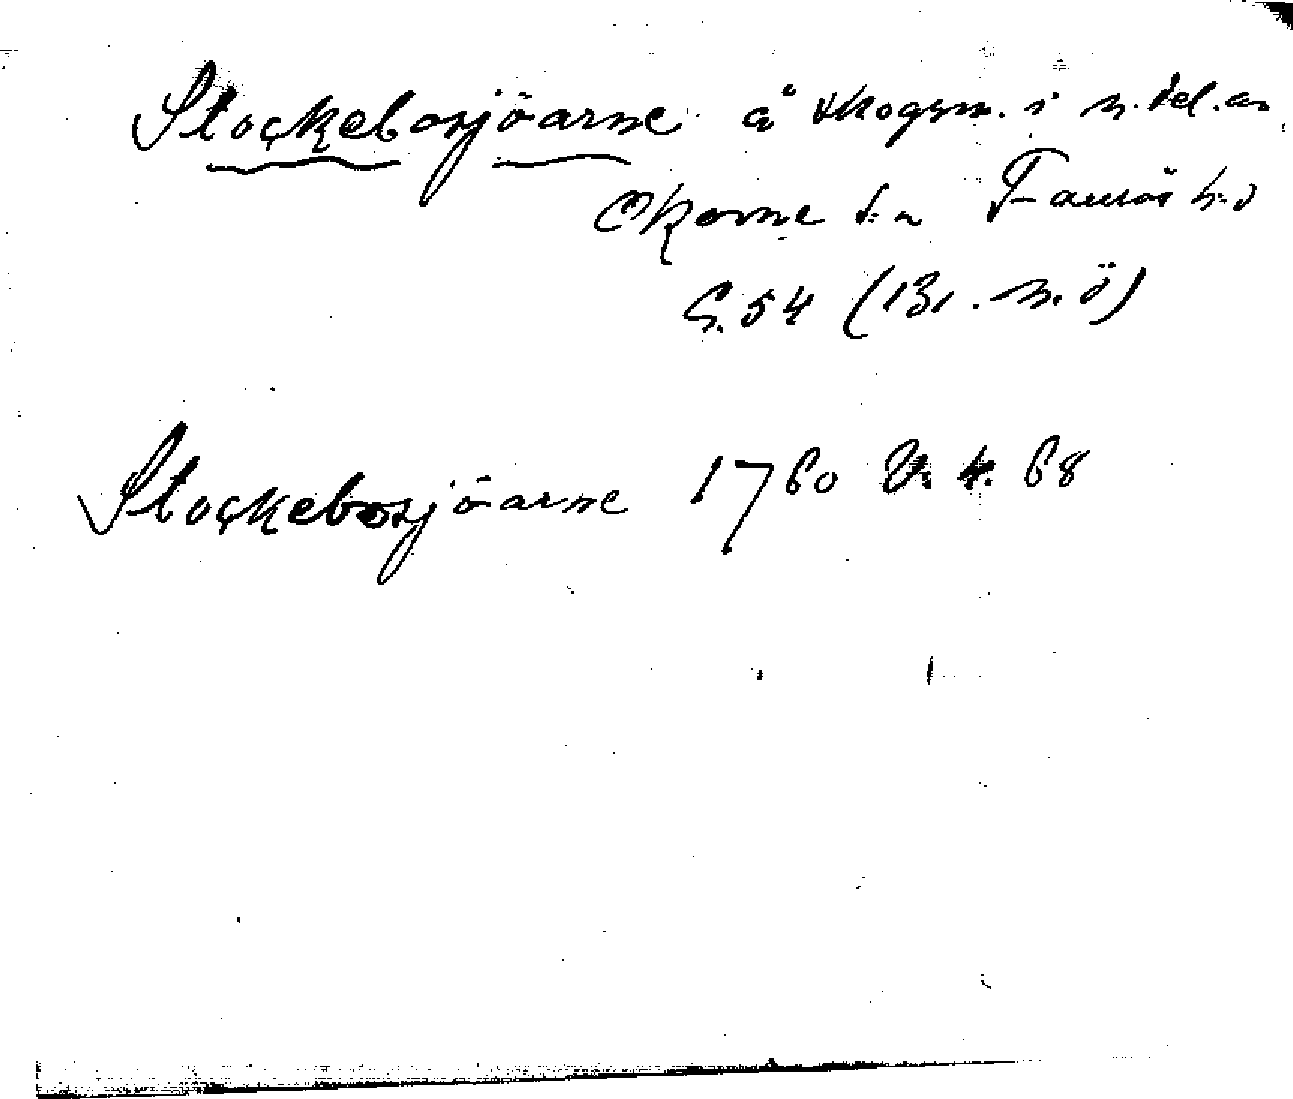 Stockebosjöarne å skogsm. i n. del. av
Skorne s:n Tanums h:d
G. 54 (Bl. n. ö)
Stockebosjöarne 1760 A. 4. 68